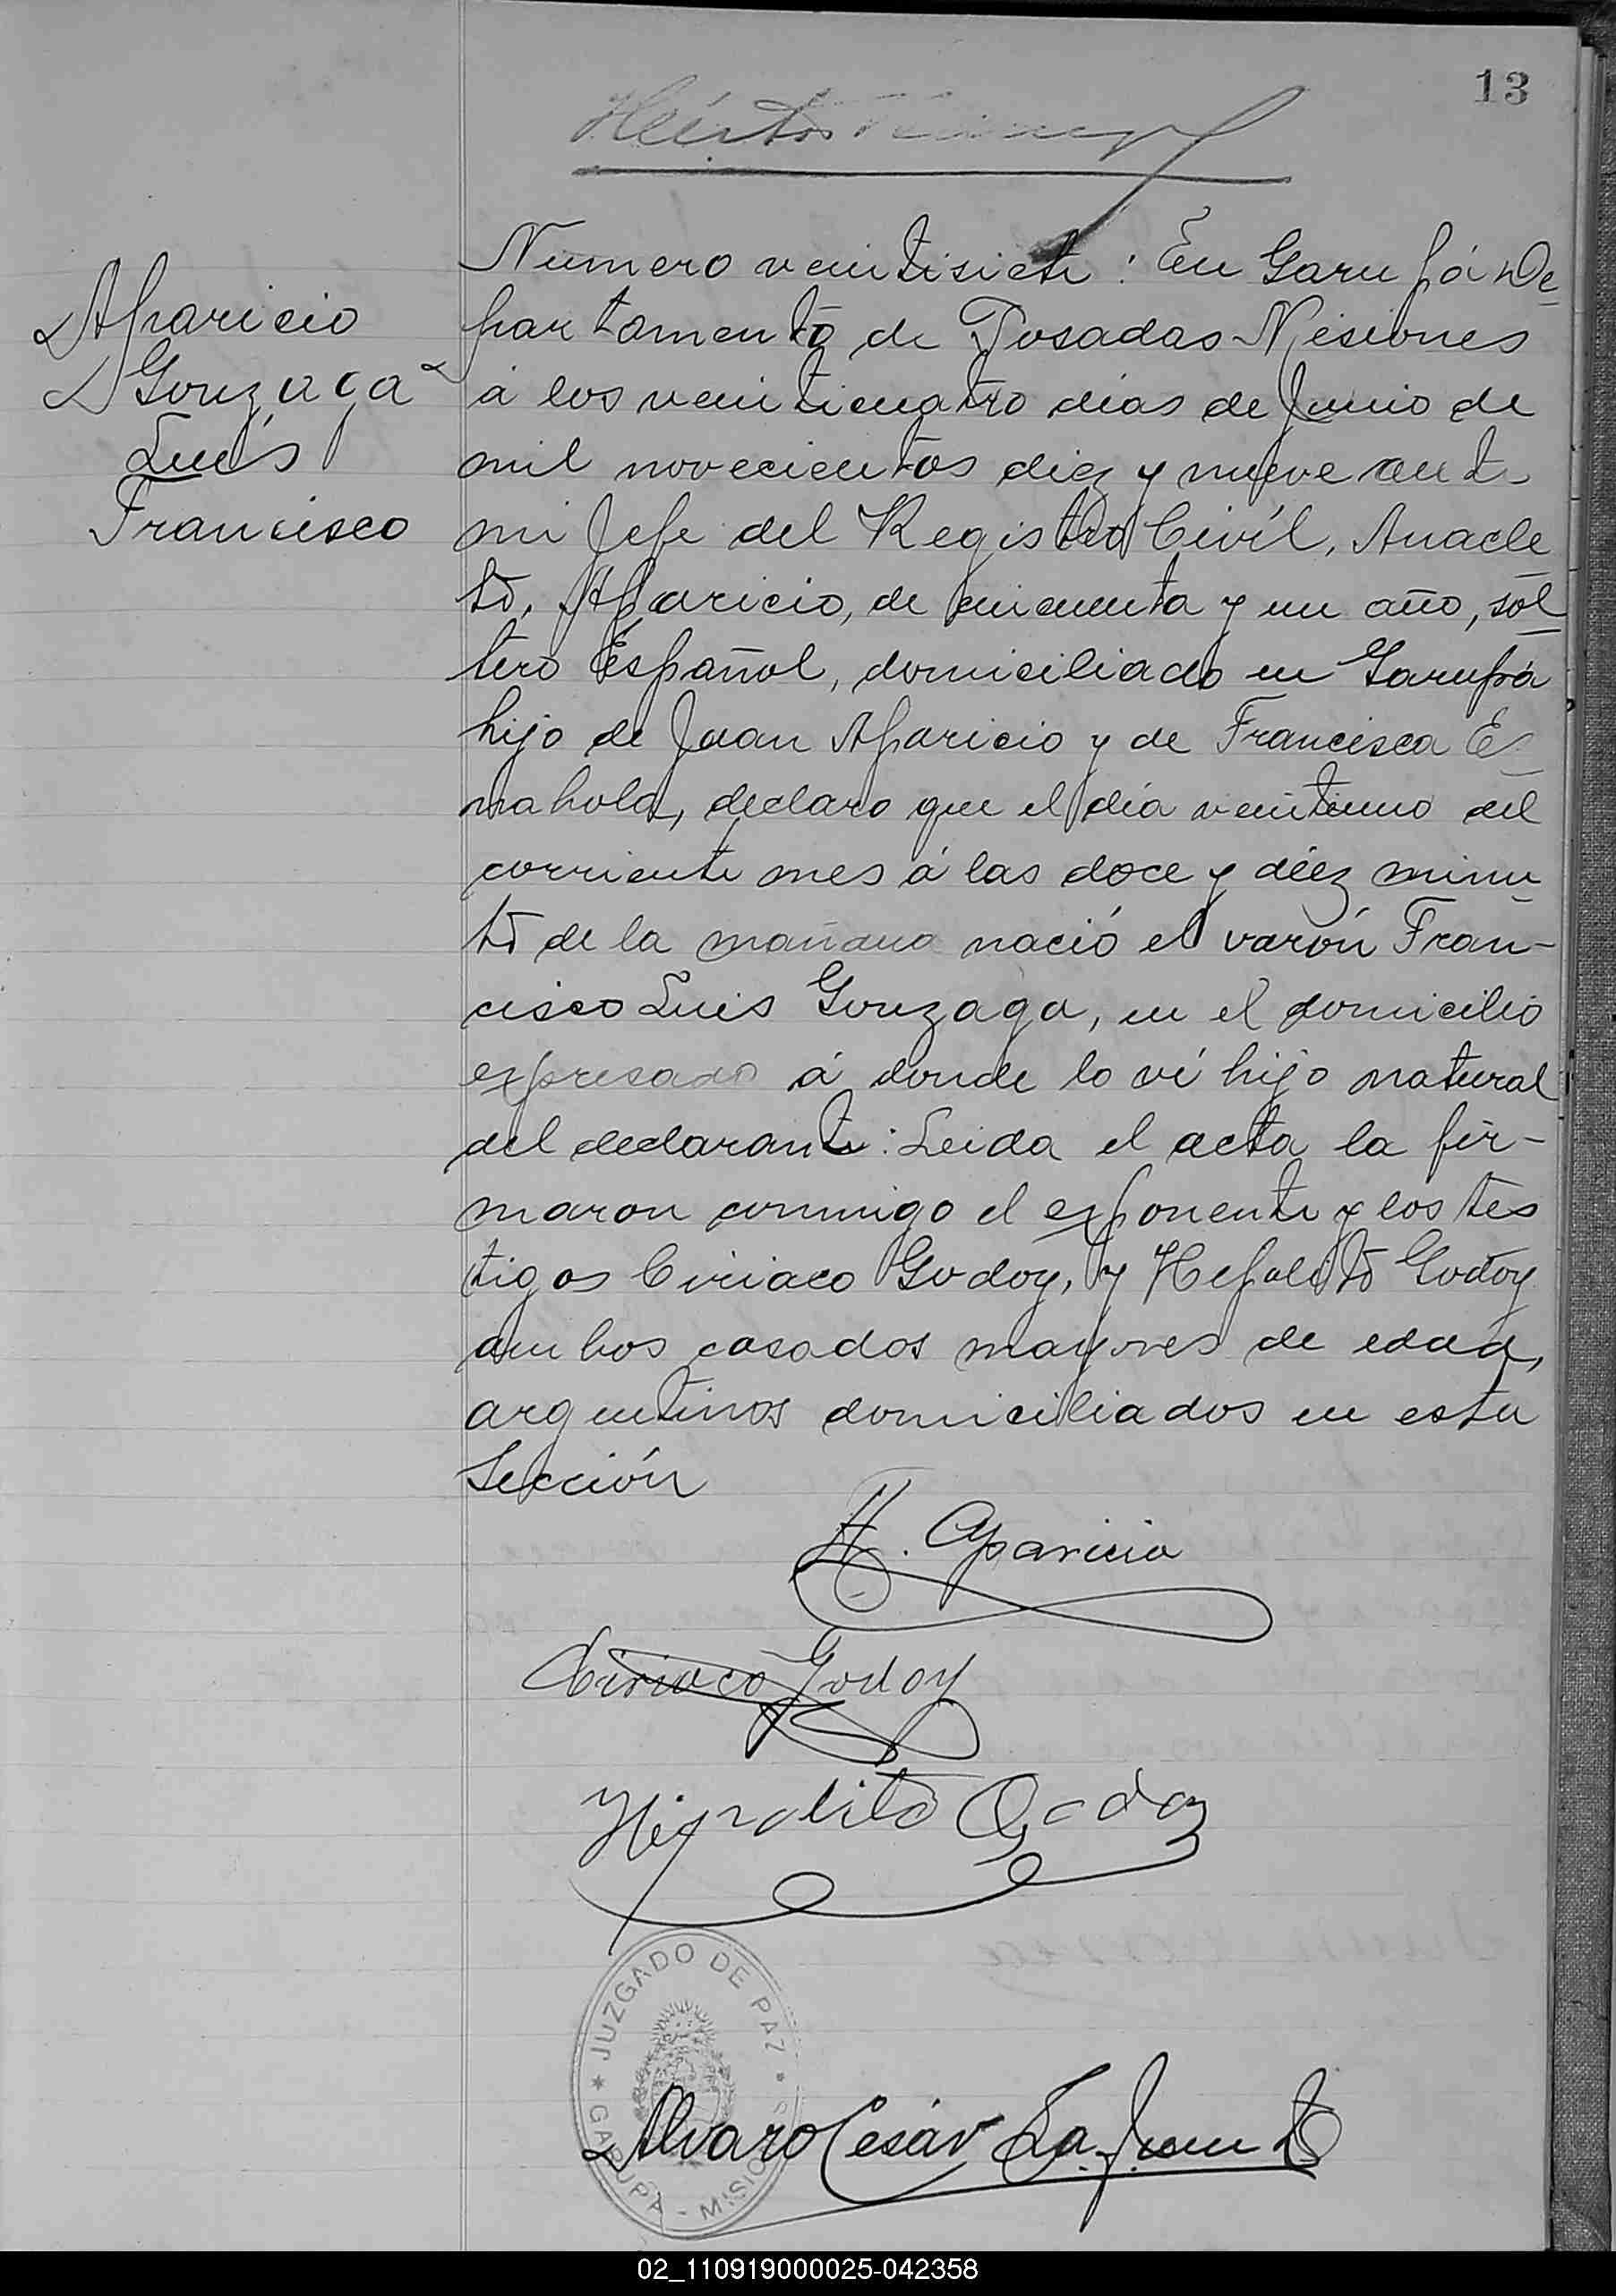 13
Numero veintisiete: En Garupá De-
partamento de Posadas Misiones
á los veinticuatro días de Junio de
mil novecientos diez y nueve ante
mi Jefe del Registro Civíl, Anacle-
to, Aparicio, de cincuenta y un año, sol-
tero Español, domiciliado en Garupá
hijo de Juan Aparicio y de Francisca
declaro que el día veintiuno del
corriente mes á las doce y diéz minu-
to de la mañana nació el varón Fran-
cisco Luis Gonzaga, en el domicilio
expresado á donde lo ví hijo natural
del declarante: Leida el acta la fir-
maron conmigo el exponente y los tes
tigos Ciriaco Godoy, y Hepolito Godoy
ambos casados mayores de edad,
argentinos domiciliados en esta
Sección
Aparicio
Gonzaga
Luis
Francisco
Aparicio
Ciriaco Godoy
Hipolito Godoy
JUZGADO DE PAZ
GARUPA - MISIO
Alvaro Cesár
02_110919000025-042358